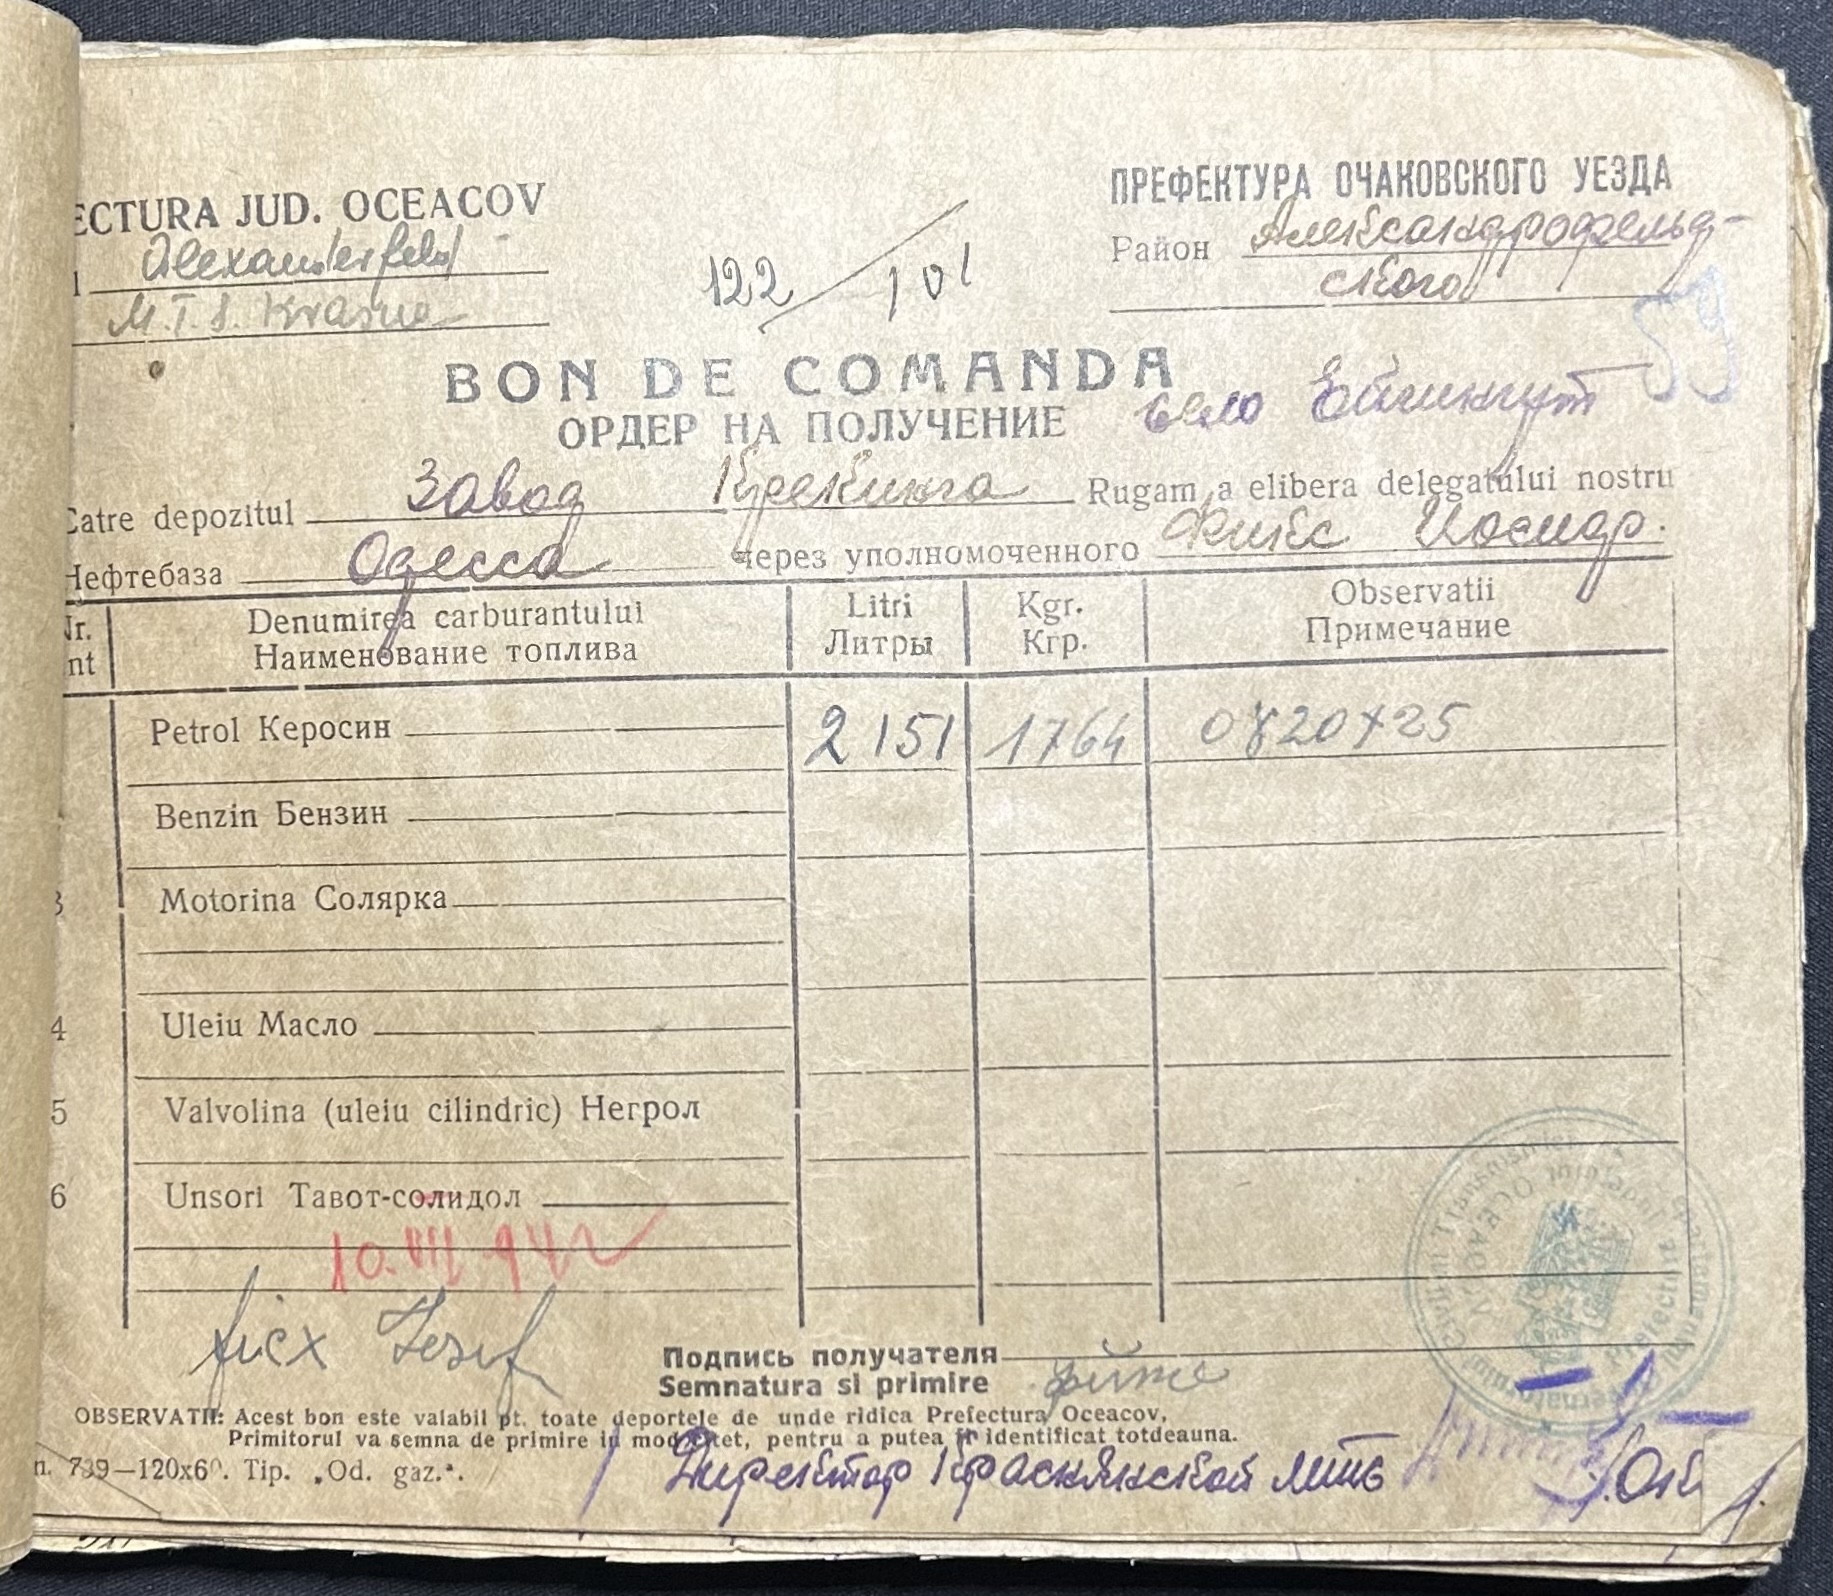 ECTURA JUD. OCEACOV
Alexanderfeld
M.T.S. Krasna
122 / 101
ПРЕФЕКТУРА ОЧАКОВСКОГО УЕЗДА
Район Александрофельд-
ского
59
BON DE COMANDA
ОРДЕР НА ПОЛУЧЕНИЕ
село Ейгенгут
Catre depozitul Завод Крекинга Rugam a elibera delegatului nostru
Нефтебаза Одесса через уполномоченного Фикс Иосиф.
Nr. Denumirea carburantului Litri Kgr. Observatii
nt Наименование топлива Литры Кгр. Примечание
Petrol Керосин 2151 1764 0820+25
Benzin Бензин
3 Motorina Солярка
4 Uleiu Масло
5 Valvolina (uleiu cilindric) Негрол
6 Unsori Тавот-солидол
10.VIII 942
Ficx Iosif
Подпись получателя
Semnatura si primire
OBSERVATII: Acest bon este valabil pt. toate deportele de unde ridica Prefectura Oceacov,
Primitorul va semna de primire in mod citet, pentru a putea fi identificat totdeauna.
n. 739—120x60. Tip. „Od. gaz.".
Директор Краснянской мтс